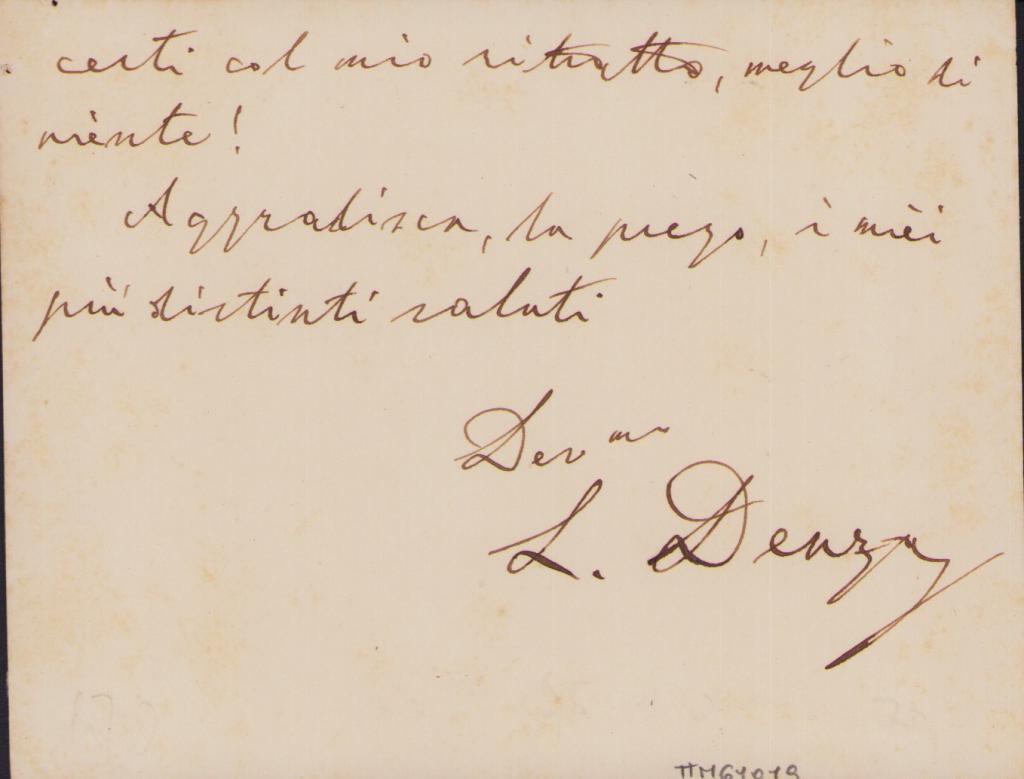 certi col mio ritratto, meglio di
niente!
Aggradisca, la prego, i miei
più distinti saluti
Dev mo
L. Denza